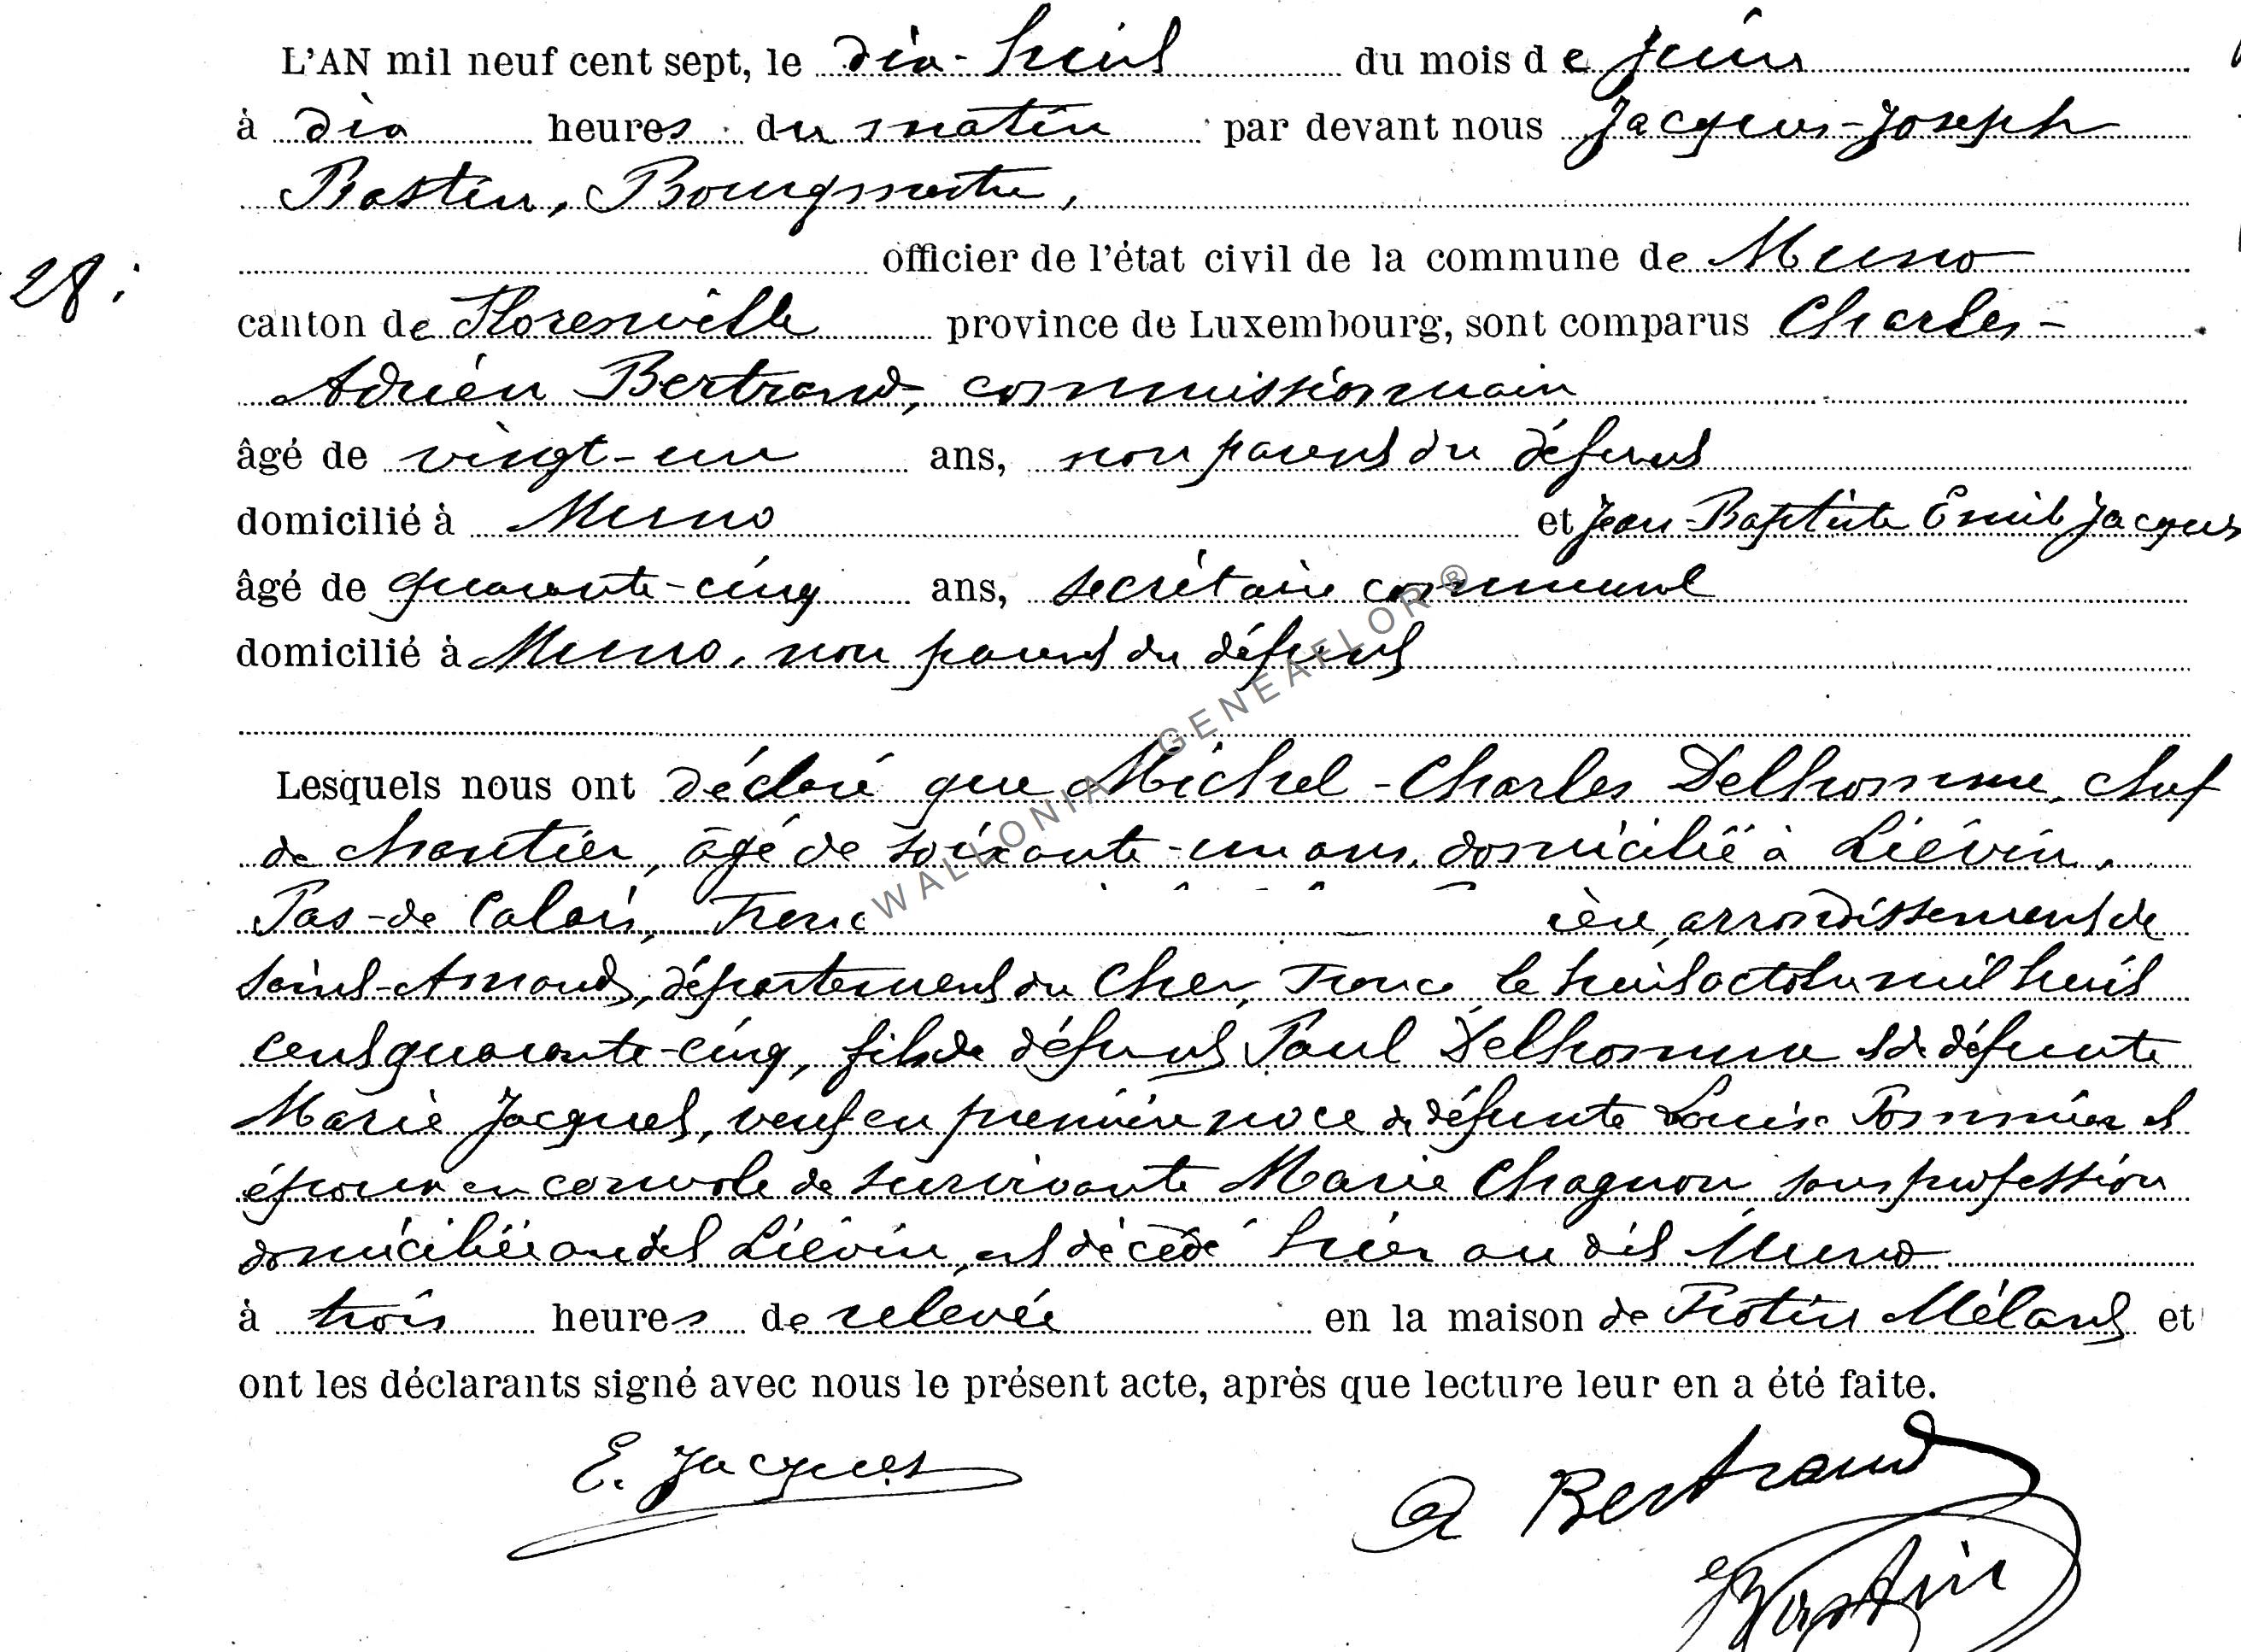 L'AN mil neuf cent sept, le dix-huit du mois de juin
à dix heures du matin par devant nous Jacques-Joseph
Bastin, Bourgmestre,
officier de l'état civil de la commune de Muno
28.
canton de Florenville province de Luxembourg, sont comparus Charles-
Adrien Bertrand, commissionnaire
âgé de vingt-un ans, non parent du défunt
domicilié à Muno et Jean-Baptiste Emile Jacques
âgé de quarante-cinq ans, secrétaire communal
domicilié à Muno, non parent du défunt
Lesquels nous ont déclaré que Michel-Charles Delhomme, chef
de chantier, âgé de soixante-un ans, domicilié à Liévin,
Pas-de Calais, arrondissement de
Saint-Amand, département du Cher, France, le huit octobre mil huit
cent quarante-cinq, fils de défunt Paul Delhomme et de défunte
Marie Jacquet, veuf en première noce de défunte Louise Pommier et
époux en convole de survivante Marie Chagnon, sans profession
domiciliée audit Liévin, est décédé hier au dit Muno
à trois heures de relevée en la maison de Frotin Mélant et
ont les déclarants signé avec nous le présent acte, après que lecture leur en a été faite.
E. Jacques
A Bertrand
Bastin
WALLONIA GENEAFLOR®